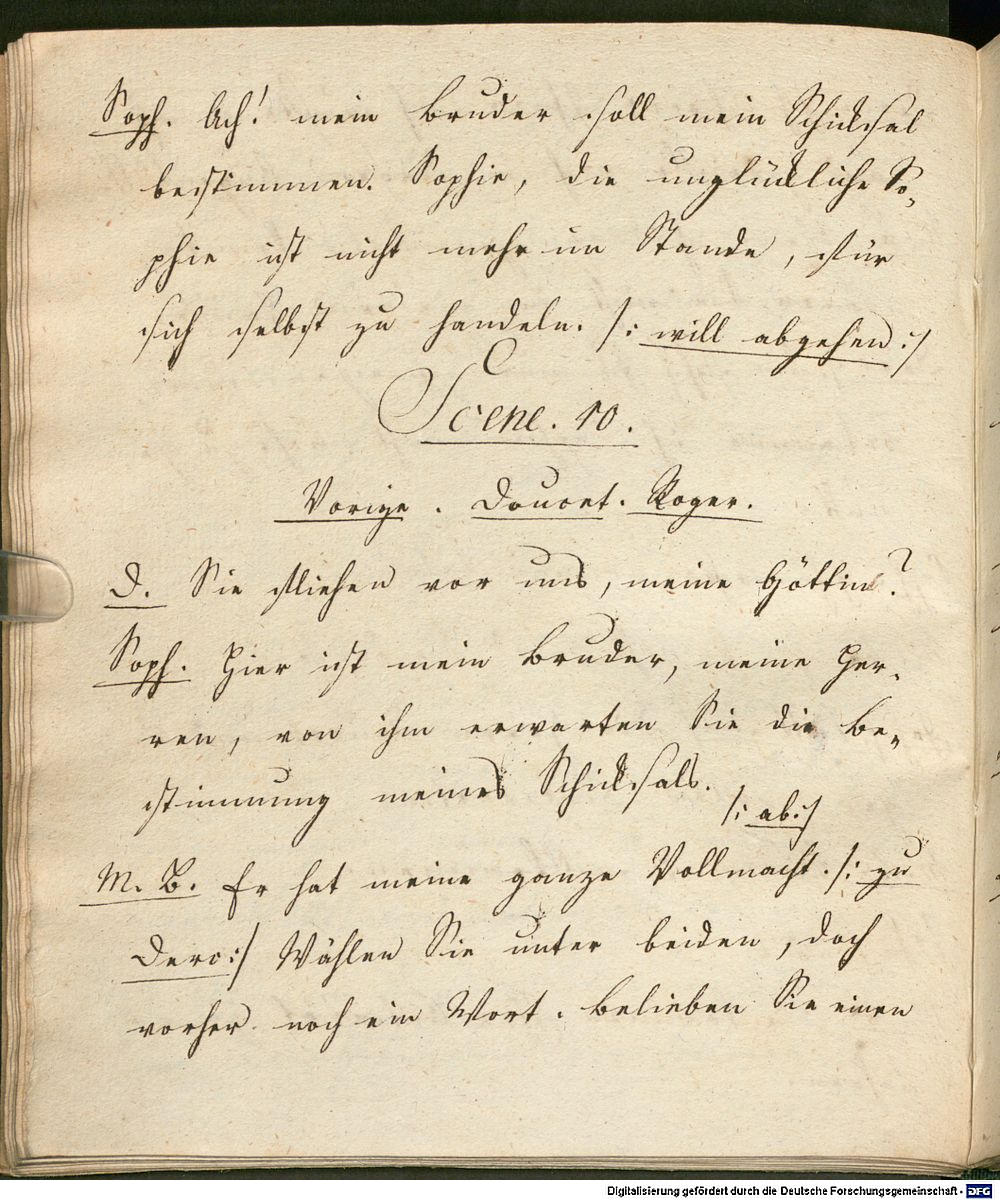 Soph. Ach! mein Bruder soll mein Schicksal
bestimmen. Sophie, die unglückliche So-
phie ist nicht mehr im Stande, für
sich selbst zu handeln. /: will abgehen :/
Scene. 10.
Vorige. Doucet. Roger.
D. Sie fliehen vor uns, meine Göttin?
Soph. Hier ist mein Bruder, meine Her-
ren, von ihm erwarten Sie die Be-
stimmung meines Schicksals.
/: ab :/
M. B. Er hat meine ganze Vollmacht. /: zu
Derv :/ Wählen Sie unter beiden, doch
vorher noch ein Wort. Belieben Sie einen
Digitalisierung gefördert durch die Deutsche Forschungsgemeinschaft - DFG